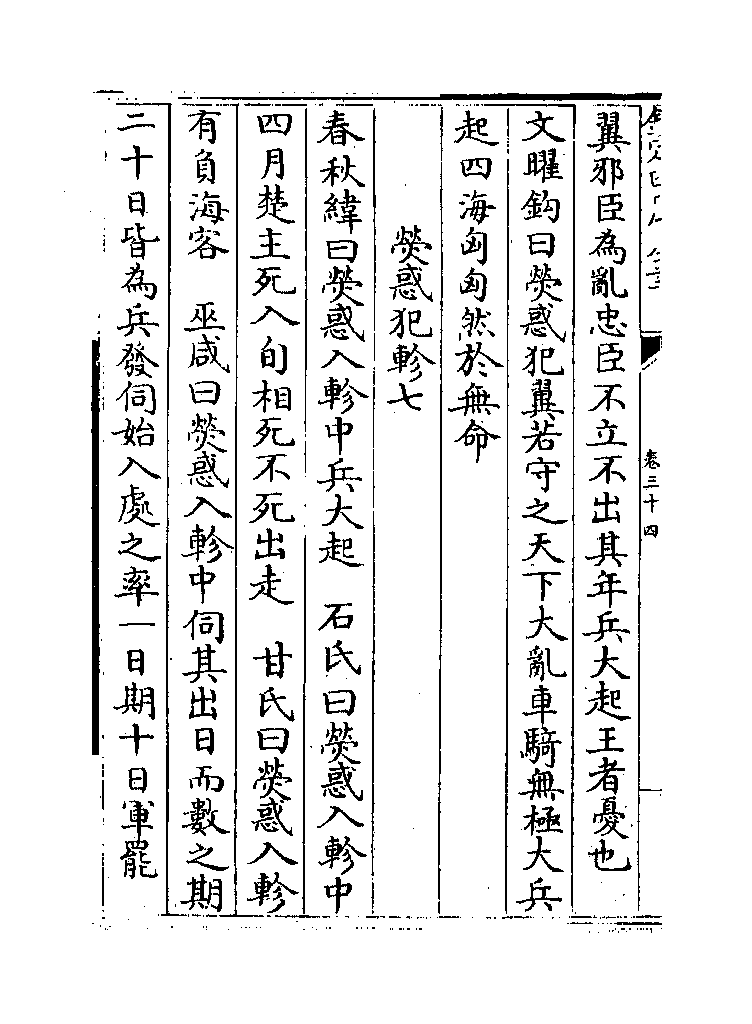 翼邪臣為亂忠臣不立不出其年兵大起王者憂也
文曜鈎曰熒惑犯翼若守之天下大亂車騎無極大兵
起四海匈匈然於無命
熒惑犯軫七
春秋緯曰熒惑入軫中兵大起　石氏曰熒惑入軫中
四月楚主死入旬相死不死出走　甘氏曰熒惑入軫
有負海客　巫咸曰熒惑入軫中伺其出日而數之期
二十日皆為兵發伺始入處之率一日期十日軍罷
卷三十四